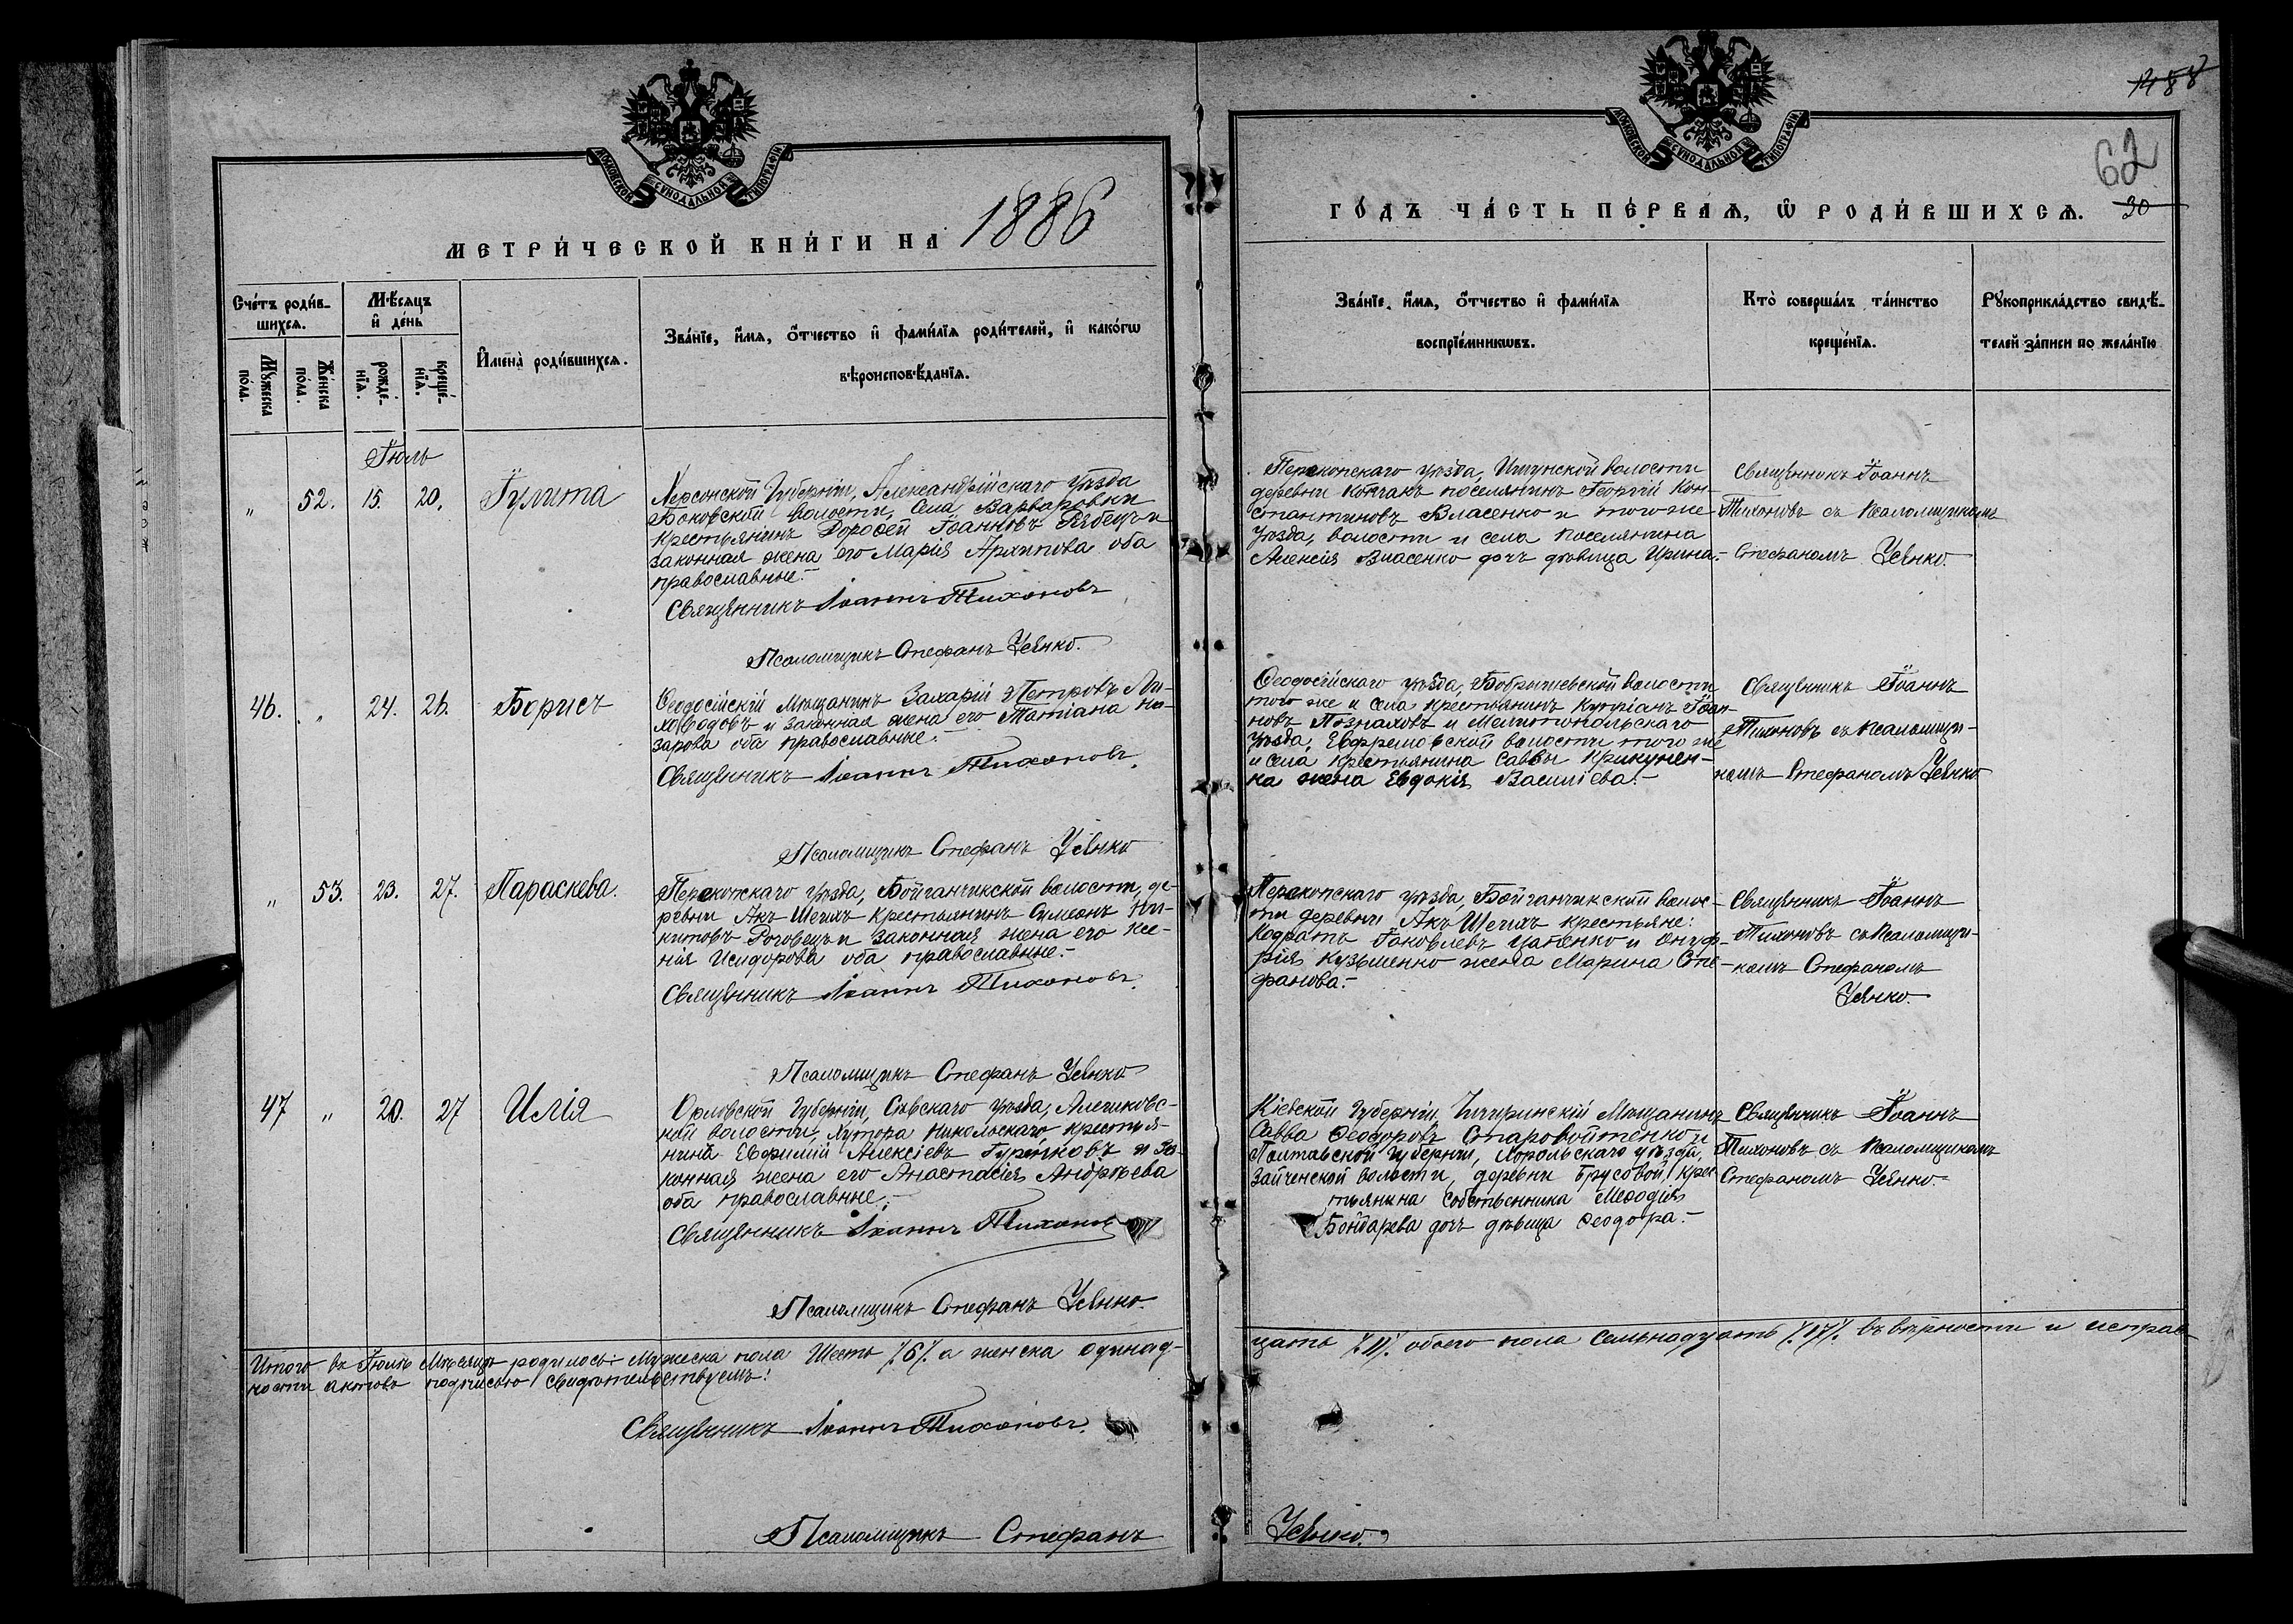 МОСКОВСКОЙ СѴНОДАЛЬНОЙ ТИПОГРАФІИ
МЕТРИ́ЧЕСКОЙ КНИ́ГИ НА 1886
Сче́тъ роди́в-
шихсѧ.
Мѣ́сѧцъ
и҆ де́нь
Мꙋ́жеска
по́ла.
Же́нска
по́ла.
рожде́-
нїѧ.
креще́-
нїѧ.
И҆мена̀ роди́вшихсѧ.
Зва́нїе, и҆́мѧ, ѻ҆́тчество и҆ фами́лїѧ роди́телей, и҆ како́гѡ
вѣроисповѣ́данїѧ.
Іюль
" 52. 15. 20. Іулита
Херсонской Губерніи, Александрійскаго уѣзда
Боковской волости, Села Варваровки
крестьянинъ Дорофей Іоанновъ Рябецъ и
законная жена его Марія Архипова оба
православные.-
Священникъ Іоаннъ Тихоновъ
Псаломщикъ Стефанъ Усѣнко.
46. " 24. 26. Борисъ
Ѳеодосійскій Мѣщанинъ Захарій Петровъ Ли-
ховодовъ и законная жена его Татіана На-
зарова оба православные.-
Священникъ Іоаннъ Тихоновъ.
Псаломщикъ Стефанъ Усѣнко
" 53. 23. 27. Параскева.
Перекопскаго уѣзда, Бойганчикской волости, де-
ревни Акъ Шеихъ крестьянинъ Симеонъ Ни-
китовъ Роговецъ и законная жена его Ксе-
нія Исидорова оба православные.-
Священникъ Іоаннъ Тихоновъ.
Псаломщикъ Стефанъ Усѣнко
47 " 20. 27 Илія
Орловской Губерніи, Сѣвскаго уѣзда,
кой волости, Хутора Никольскаго, крестья-
нинъ Евфимій Алексіевъ и За-
конная жена его Анастасія Андрѣева
оба православные.-
Священникъ Іоаннъ Тихоновъ
Псаломщикъ Стефанъ Усѣнко.
Итого въ Іюлѣ Мѣсяцѣ родилось: Мужеска пола Шесть /.6/. а женска одинад-
ности актовъ подписью свидѣтельствуемъ!
Священникъ Іоаннъ Тихоновъ.
Псаломщикъ Стефанъ
МОСКОВСКОЙ СѴНОДАЛЬНОЙ ТИПОГРАФІИ
62
30
ГО́ДЪ ЧА́СТЬ ПЕ́РВАѦ, Ѡ҆ РОДИ́ВШИХСѦ.
Зва́нїе, и҆́мѧ, ѻ҆́тчество и҆ фами́лїѧ
воспрїе́мникѡвъ.
Кто̀ соверша́лъ та́инство
креще́нїѧ.
Рꙋкоприкла́дство свидѣ́-
телей за́писи по жела́нїю
Перекопскаго уѣзда, Ишунской волости
деревни Копчакъ поселянинъ Георгій Кон-
стантиновъ Власенко и того же
уѣзда, волости и села поселянина
Алексія Власенко дочь дѣвица Ирина.-
Священникъ Іоаннъ
Тихоновъ съ псаломщикомъ
Стефаномъ Усѣнко.
Ѳеодосійскаго уѣзда, волости
того же и села крестьянинъ Купріанъ Іоан-
новъ Познаховъ и Мелитопольскаго
уѣзда, Евфремовской волости того же
и села крестьянина Саввы Крикунен-
ка жена Евдокія Василіева.-
Священникъ Іоаннъ
Тихоновъ съ псаломщи-
комъ Стефаномъ Усѣнко
Перекопскаго уѣзда, Бойганчикской волос-
ти деревни Акъ Шеихъ крестьяне:
Кодратъ Іаковлевъ Цапенко и Онуф-
рія Кузьменко жена Марина Сте-
фанова.-
Священникъ Іоаннъ
Тихоновъ съ псаломщи-
комъ Стефаномъ
Усѣнко.
Кіевской Губерніи, Чигиринскій Мѣщанинъ
Савва Ѳеодоровъ Старовойтенко и
Полтавской Губерніи, Хорольскаго уѣзда,
Зайченской волости, деревни Брусовой, крес-
тьянина собственника Меѳодія
Бондарева дочь дѣвица Ѳеодора.-
Священникъ Іоаннъ
Тихоновъ съ псаломщикомъ
Стефаномъ Усѣнко
цать /.11/. обоего пола семьнадцать /.17/. въ вѣрности и исправ-
Усѣнко.